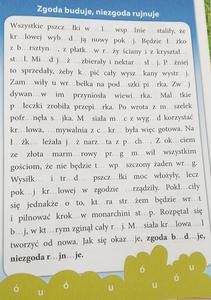 Zgoda buduje, niezgoda rujnuje
Wszystkie pszcz…łki w …l… wsp…lnie staliły, że
kr…lowej wyb…d…ją nowy pok…j. Będzie ł…żko
z b…rsztyn…, z płatk…w r…ży ściany i z kryształ…
st…l. Mi…d j…ż zbierały i nektar sł…j. P…źniej
to sprzedały, żeby k…pić cały wysz…kany wystr…j.
Zam…wiły u wr…belka na podusz…ki pi…rka. Zw…j
dywan…w im przyniosła wiewi…rka. Mal…tkie
p…łeczki zrobiła przepi…rka. Po wrota z m…szelek
pofr…nęła s…jka. M…siała m…c z wyg…d korzystać
kr…lowa, …mywalnia z c…kr… była więc gotowa. Na
ł…żk… leżała j…ż narz…ta z p…ch… . Z ok…ciem
ze złota marm…rowy pr…g m…wił wszystkim
gościom, że nie będzie t… wp…szczony żaden wr…g.
Wysiłk… i tr…d… pszcz…łki moc włożyły, lecz
pok…j kr…lowej w zgodzie …rządziły. Pokł…ciły
się jednakże o to, kt…ra str…żem będzie wr…t
i pilnować krok…w monarchini st…p. Rozpętał się
b…j, w kt…rym zginął cały r…j. M…siała kr…lowa …l
tworzyć od nowa. Jak się okaz…je, zgoda b…d…je,
niezgoda r…jn…je.
ó u ó u ó u ó u